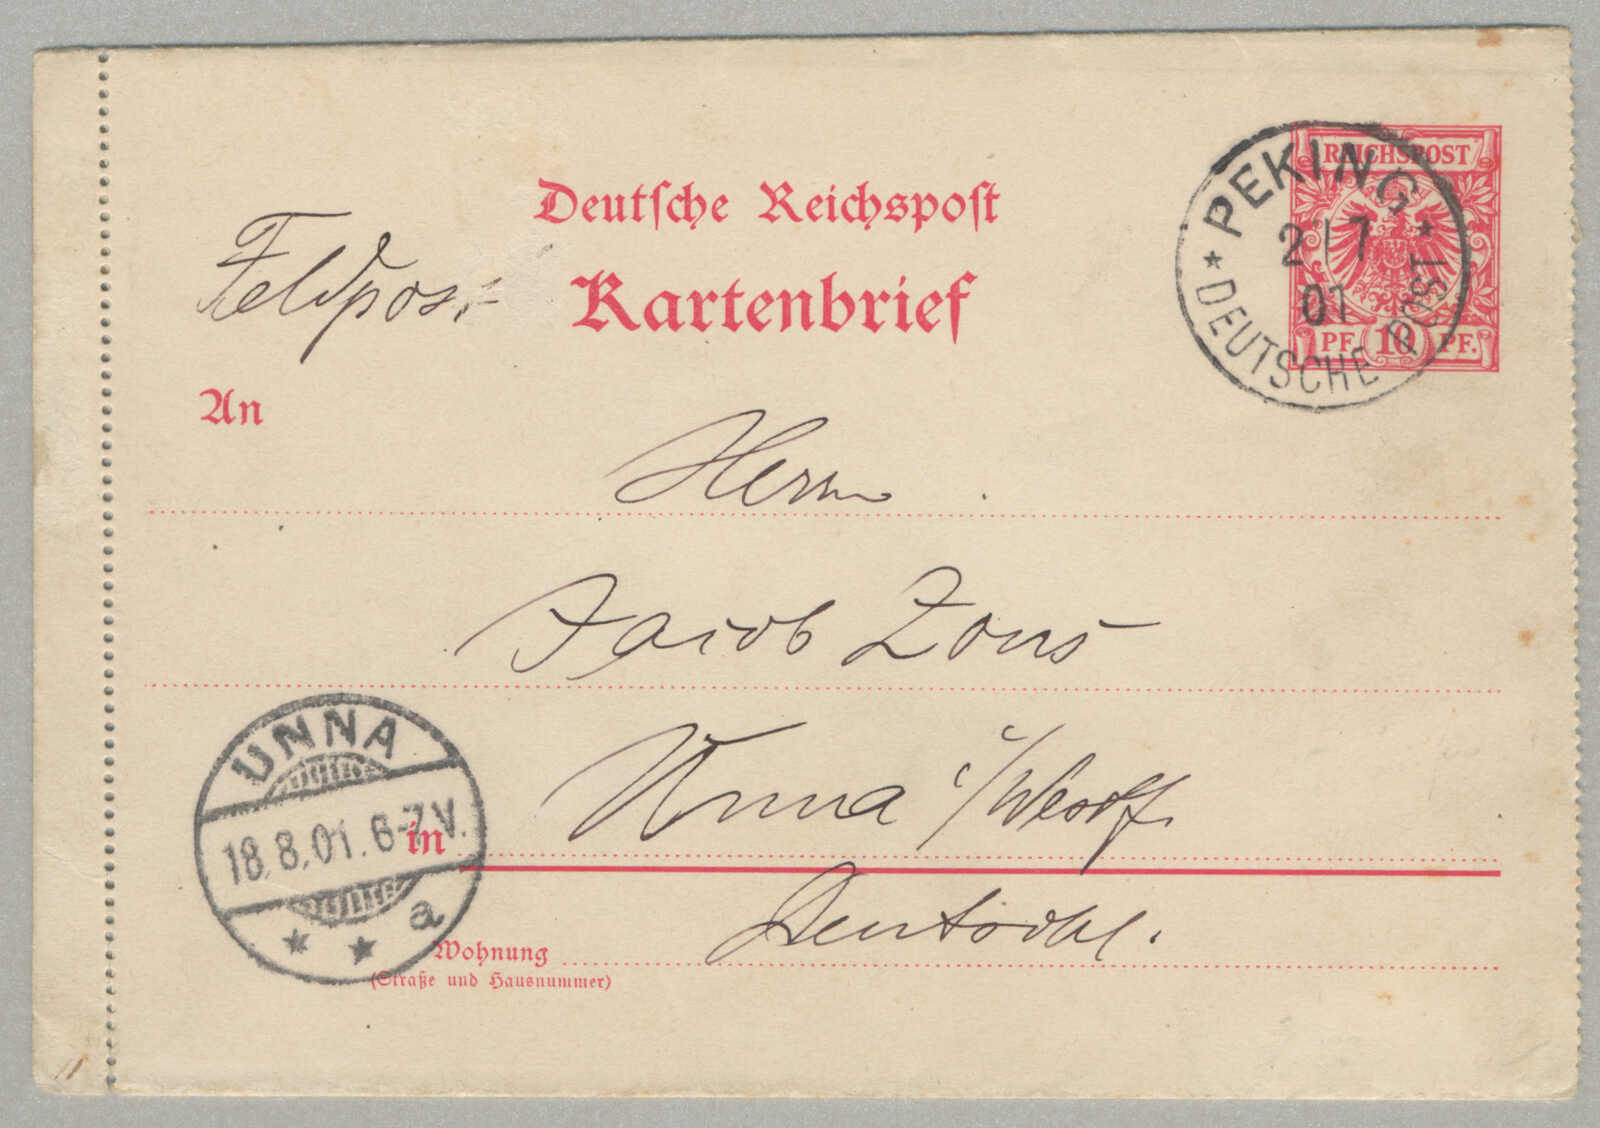 Deutsche Reichspost
Kartenbrief
Feldpost
REICHSPOST
PF. 10 PF.
PEKING
2/7
01
DEUTSCHE POST
An
Herrn
Jacob Zons
in Unna i/Westf.
UNNA
18.8.01.6-7V.
a
Wohnung
(Straße und Hausnummer)